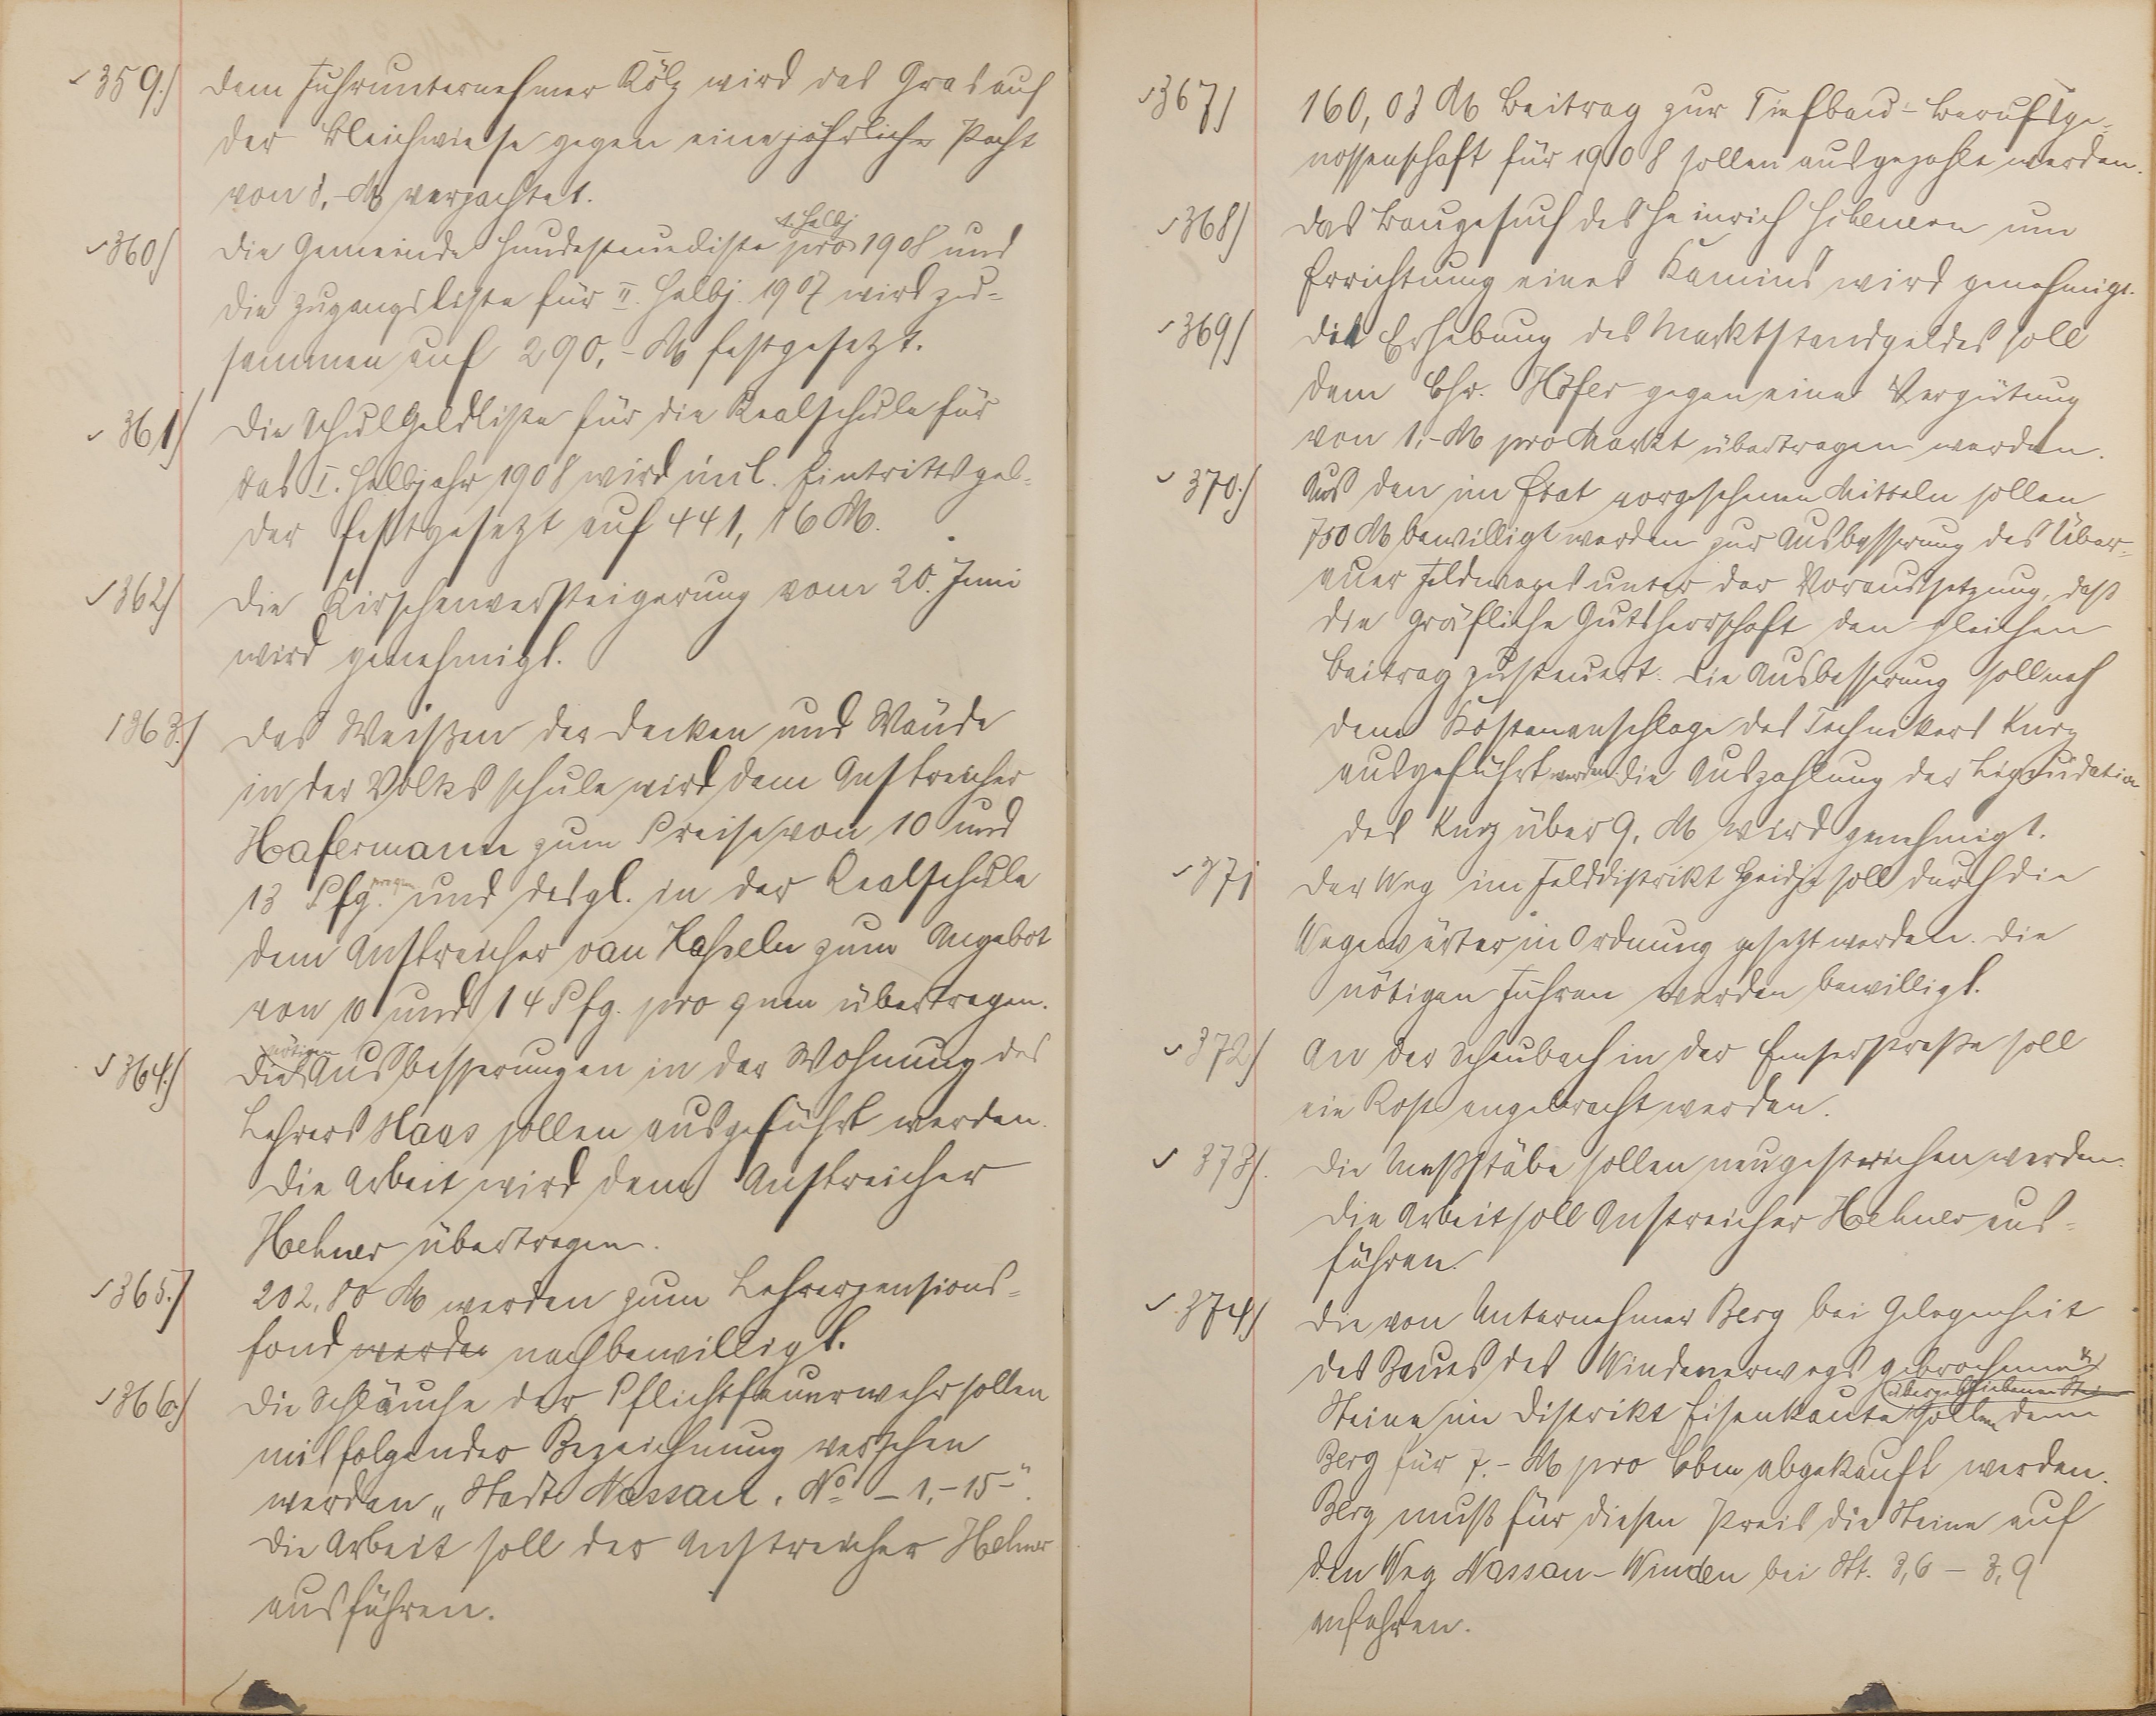 359.) Dem Fuhrunternehmer Kölz wird das Gras auf
der Bleichwiese gegen eine jährliche Pacht
von 8,- M verpachtet.
360.) Die Gemeinde Hundesteuerliste pro 1. Halbj. 1908 und
die Zugangsliste für II. Halbj. 1907 wird zu-
sammen auf 290,- M festgesetzt.
361.) Die Schulgeldliste für die Realschule für
das I. Halbjahr 1908 wird incl. Eintrittsgel-
der festgesetzt auf 441,16 M.
362.) Die Kirschenversteigerung vom 20. Juni
wird genehmigt.
363.) Das Weißen der Decken und Wände
in der Volksschule wird dem Anstreicher
Hafermann zum Preise von 10 und
13 Pfg. pro qm und desgl. in der Realschule
dem Anstreicher van Hasseln zum Angebot
von 10 und 14 Pfg. pro qm übertragen.
364.) Die nötigen Ausbesserungen in der Wohnung des
Lehrers Haas sollen ausgeführt werden.
Die Arbeit wird dem Anstreicher
Hehner übertragen.
365.) 202,80 M werden zum Lehrerpensions-
fond werden nachbewilligt.
366.) Die Schläuche der Pflichtfeuerwehr sollen
mit folgender Bezeichnung versehen
werden „Stadt Nassau, No - 1.-15-“.
Die Arbeit soll der Anstreicher Hehner
ausführen.
367.) 160,03 M Beitrag zur Tiefbau-Berufsge-
nossenschaft für 1908 sollen ausgezahlt werden.
368.) Das Baugesuch des Heinrich um
Errichtung eines Kamins wird genehmigt.
369.) Die Erhebung des Marktstandgeldes soll
dem Chr. Höfer gegen eine Vergütung
von 1,- M pro Markt übertragen werden.
370.) Aus den im Etat vorgesehenen Mitteln sollen
750 M bewilligt werden zur Ausbesserung des Über-
auer Feldweges unter der Voraussetzung, daß
die Gräfliche Gutsherrschaft den gleichen
Beitrag zusteuert. Die Ausbesserung soll nach
dem Kostenanschlage des Technikers Kurz
ausgeführt werden. Die Auszahlung der Liquidation
des Kurz über 9, M wird genehmigt.
371 Der Weg im Felddistrikt soll durch die
Wegewärter in Ordnung gesetzt werden. Die
nötigen Fuhren werden bewilligt.
372.) An der Scheubach in der Emserstraße soll
ein Rost angebracht werden.
373.) Die Meßstäbe sollen neu gestrichen werden.
Die Arbeit soll Anstreicher Hehner aus-
führen.
374.) Die von Unternehmer Berg bei Gelegenheit
des Baues des Windenerwegs gebrochenen &
übriggebliebenen Stei
Steine im Distrikt Eisenkaute sollen dem
Berg für 7.- M pro Cbm abgekauft werden.
Berg muß für diesen Preis die Steine auf
den Weg Nassau-Winden bei St. 3,6 - 3,9
anfahren.